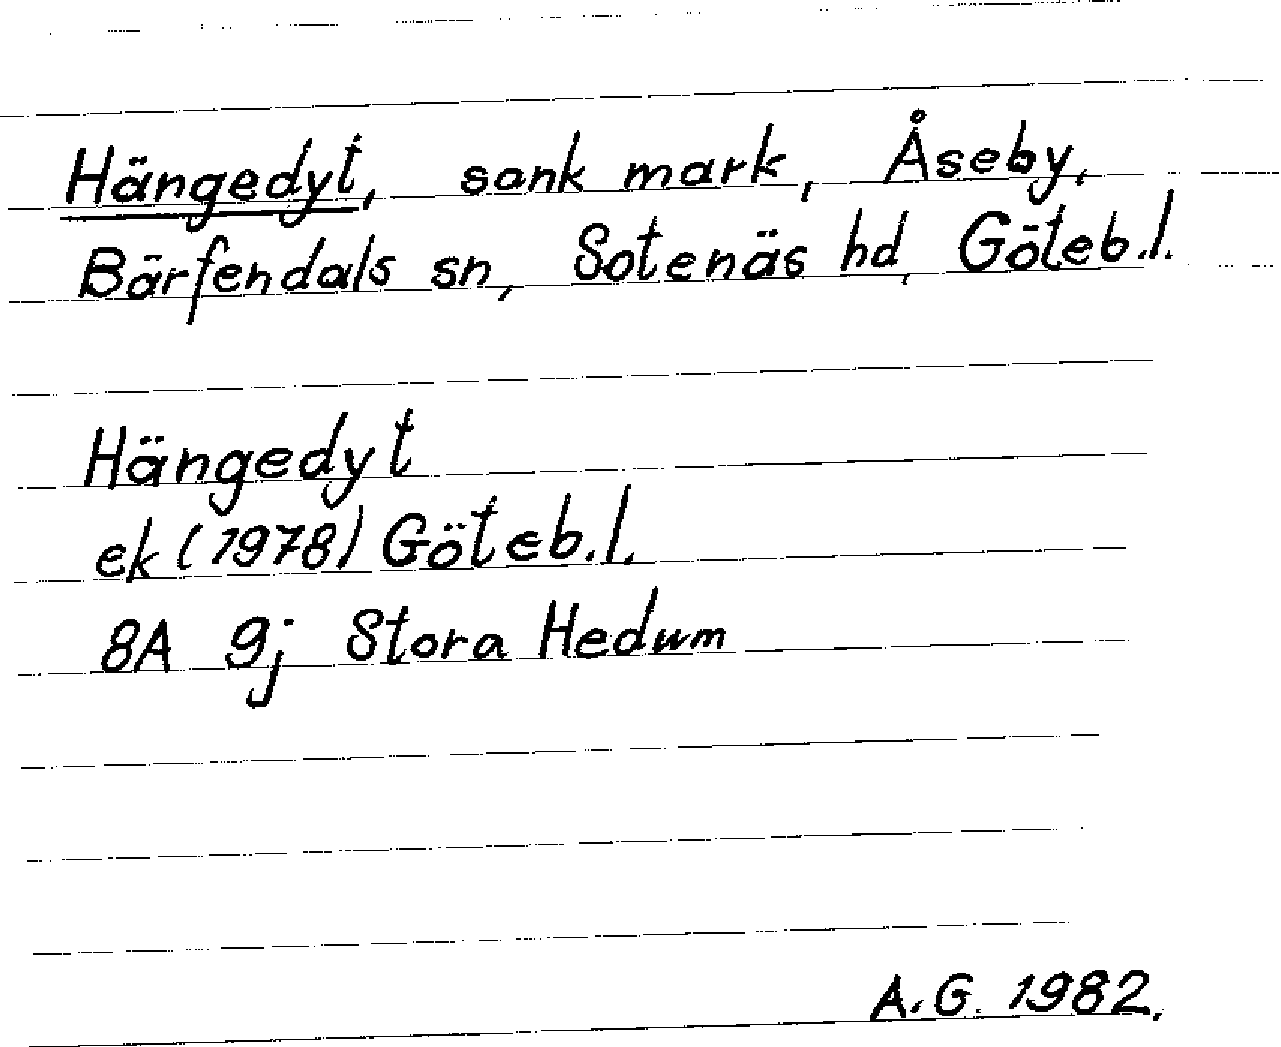 Hängedyt, sank mark, Åseby,
Bärfendals sn, Sotenäs hd, Göteb.l.
Hängedyt
ek (1978) Göteb.l.
8A 9j Stora Hedum
A.G. 1982.